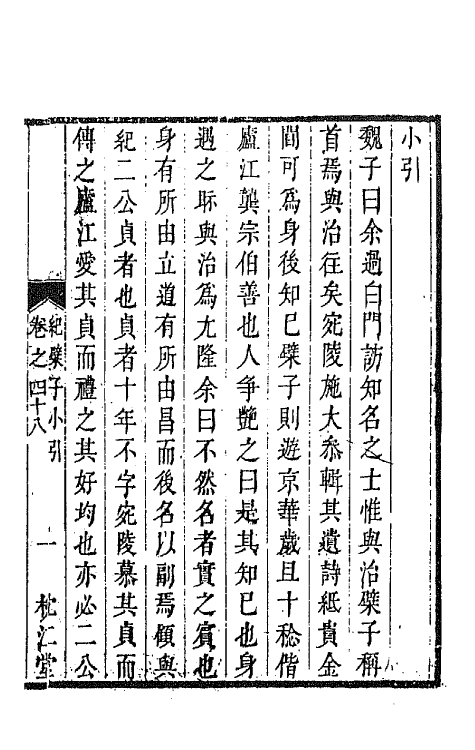 小引
魏子曰余過白門訪知名之士惟與治檗子稱
首焉與治往矣宛陵施大叅輯其遺詩紙貴金
閶可爲身後知巳檗子則遊京華歲且十稔偕
廬江龔宗伯善也人争艶之曰是其知巳也身
遇之眎與治爲尤隆余曰不然名者實之賓也
身有所由立道有所由昌而後名以副焉傾與
紀二公貞者也貞者十年不字宛陵慕其貞而
傳之廬江愛其貞而禮之其好均也亦必二公
紀檗子小引
卷之四十八
一
枕江堂